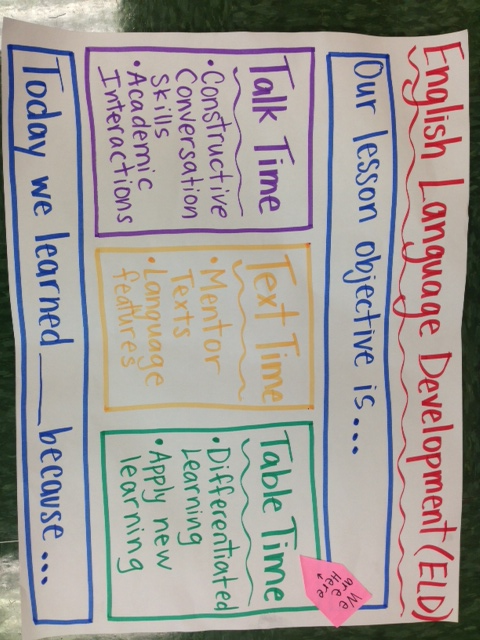 English Language Development (ELD)
Our lesson objective is...
Talk Time
• Constructive
Conversation
Skills
• Academic
Interactions
Text Time
• Mentor
Texts
• Language
features
Table Time
• Differentiated
Learning
• Apply new
learning
We
are
Here
Today we learned ___ because...